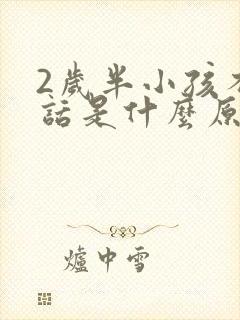 2歲半小孩不
話是什麼原
爐中雪